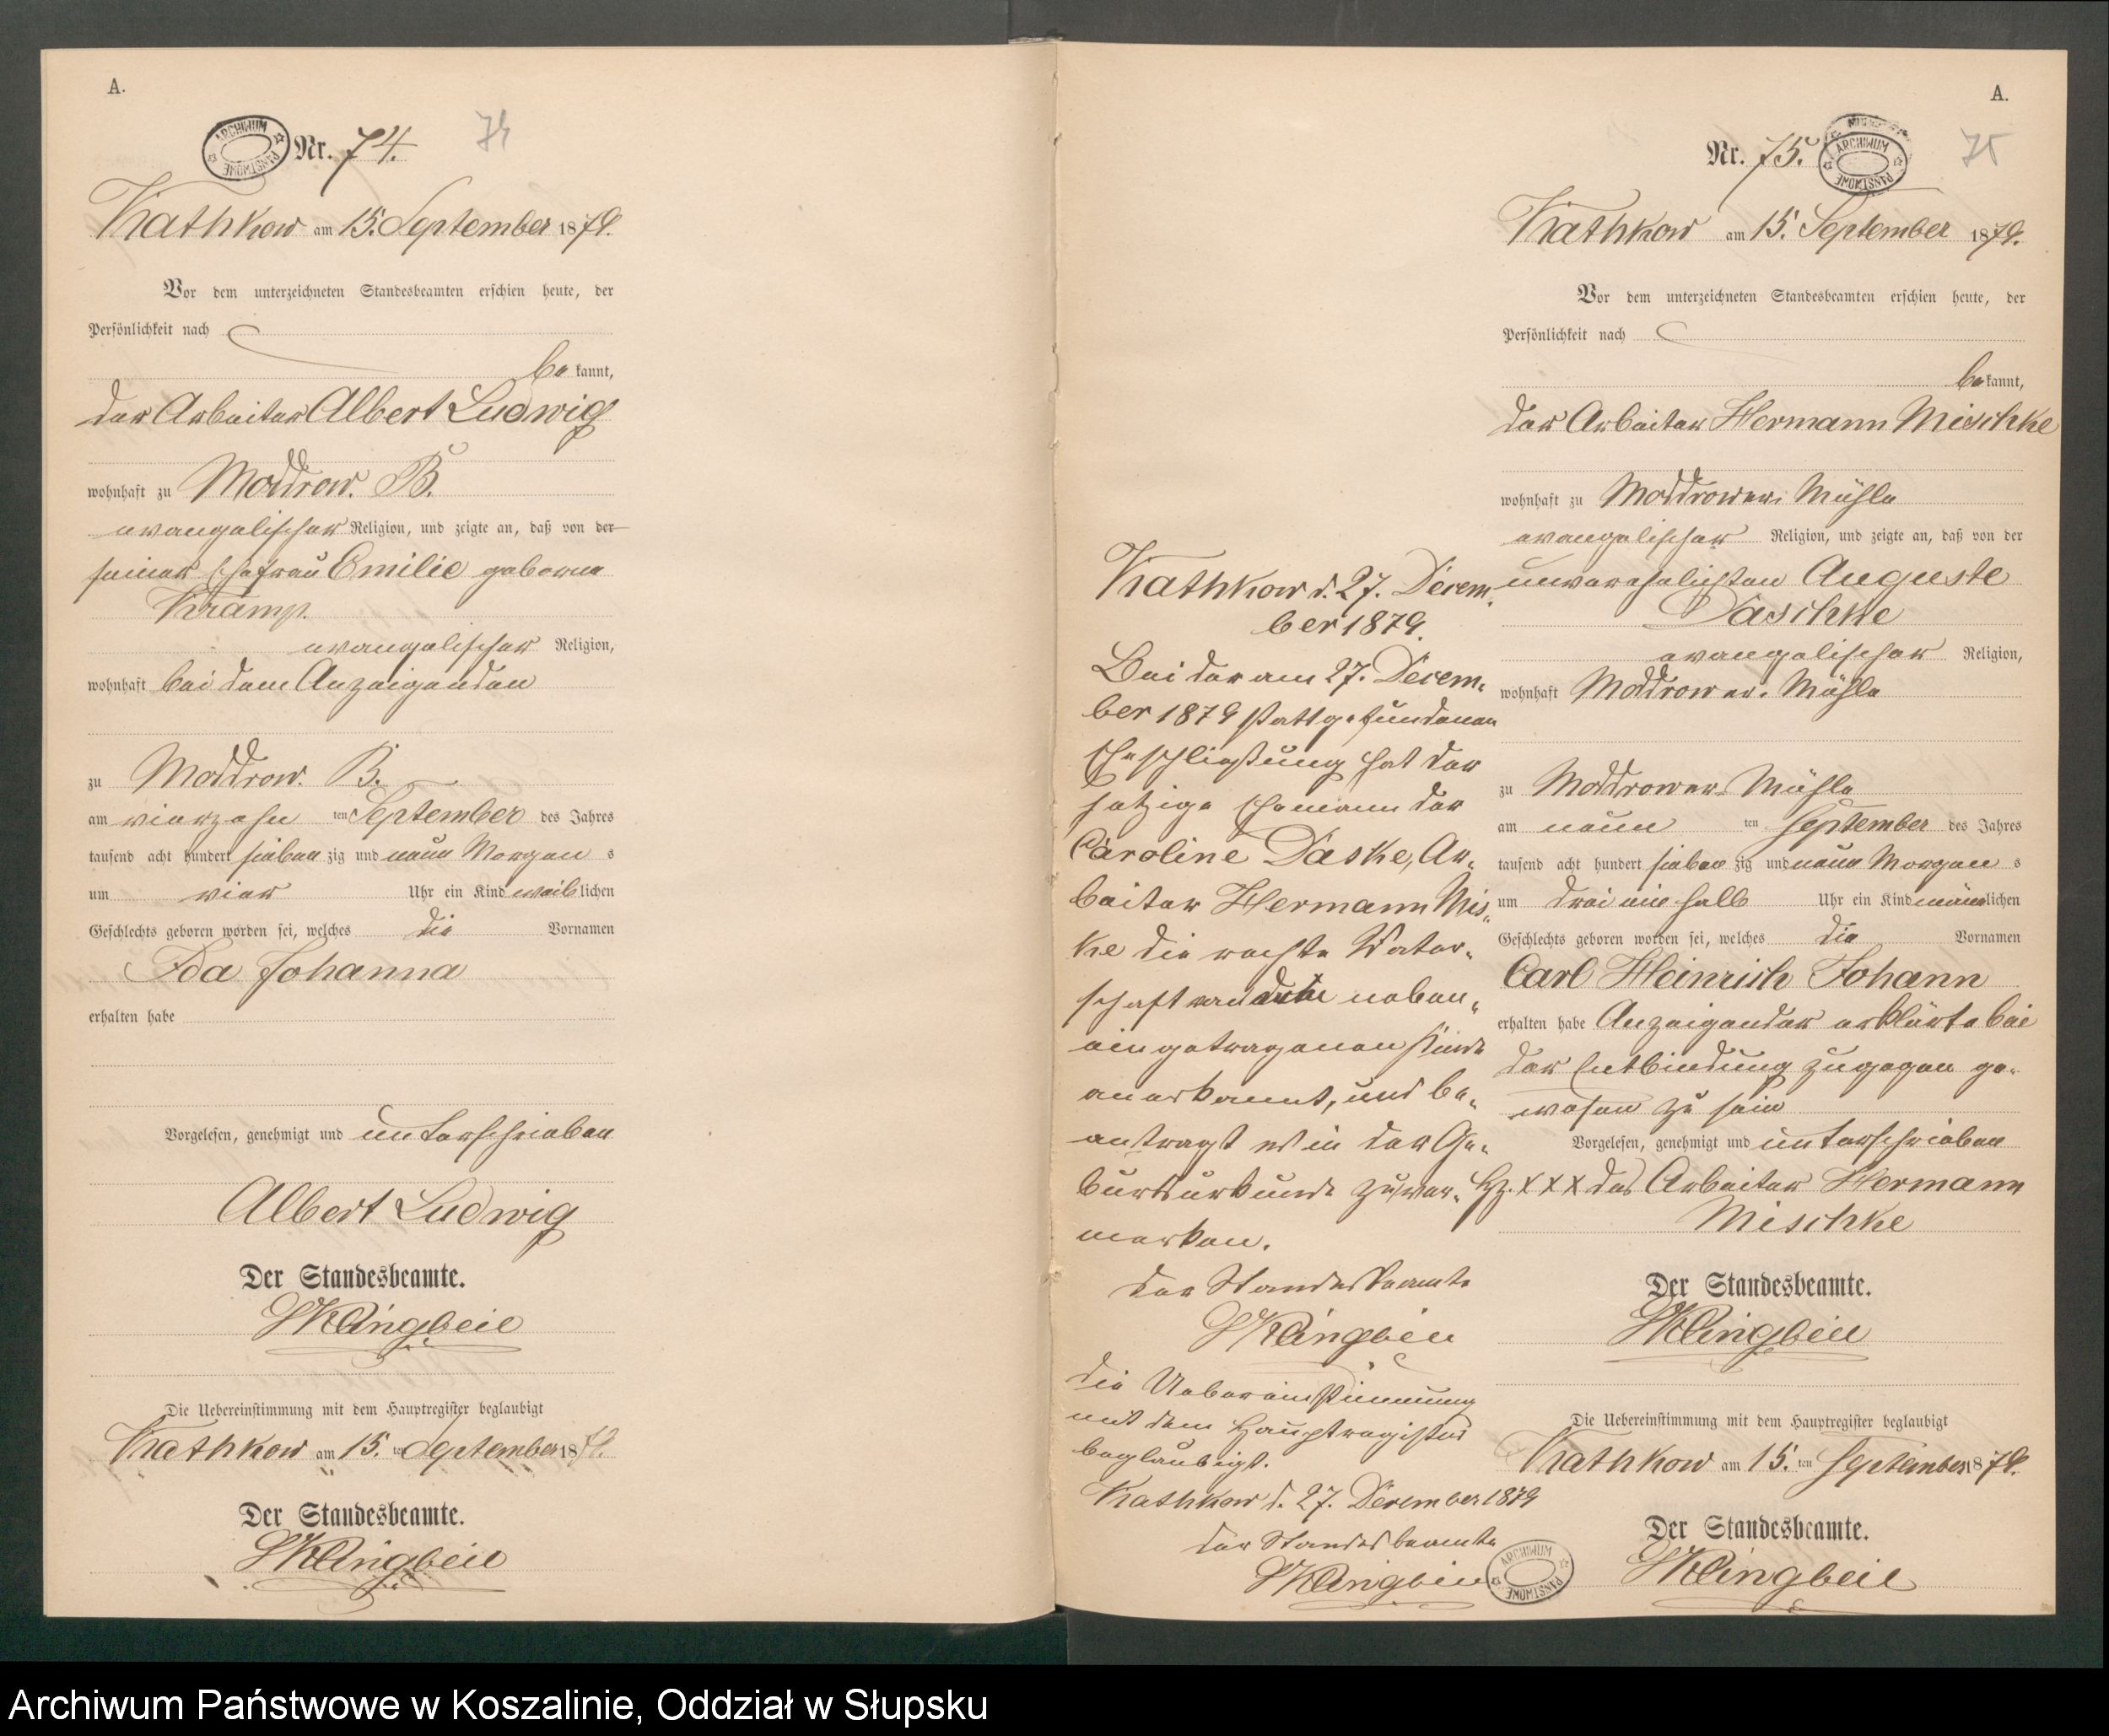 A.
ARCHIWUM PAŃSTWOWE
Nr. 74.
74
Kathkow am 15. September 1879.
Vor dem unterzeichneten Standesbeamten erschien heute, der
Persönlichkeit nach
be kannt,
der Arbeiter Albert Ludwig
wohnhaft zu Moddrow. B.
evangelischer Religion, und zeigte an, daß von der
seiner Ehefrau Emilie geborne
Kramp.
evangelischer Religion,
wohnhaft bei dem Anzeigenden
zu Moddrow. B.
am vierzehn ten September des Jahres
tausend acht hundert sieben zig und neun Morgen s
um vier Uhr ein Kind weib lichen
Geschlechts geboren worden sei, welches die Vornamen
Ida Johanna
erhalten habe
Vorgelesen, genehmigt und unterschrieben
Albert Ludwig
Der Standesbeamte.
Klingbeil
Die Uebereinstimmung mit dem Hauptregister beglaubigt
Kathkow am 15. ten September 1879.
Der Standesbeamte.
Klingbeil
Kathkow d. 27. Decem-
ber 1879.
Bei der am 27. Decem-
ber 1879 stattgefundenen
Eheschließung hat der
jetzige Ehemann der
Caroline Daske, Ar-
beiter Hermann Mis-
ke die rechte Vater-
schaft neben-
eingetragenen Kinde
anerkannt, und be-
antragt es in der Ge-
burtsurkunde zu ver-
merken.
Der Standesbeamte
Klingbeil
Die Uebereinstimmung
mit dem Hauptregister
beglaubigt.
Kathkow d. 27. December 1879
Der Standesbeamte
Klingbeil
ARCHIWUM PAŃSTWOWE
A.
Nr. 75.
ARCHIWUM PAŃSTWOWE
75
Kathkow am 15. September 1879.
Vor dem unterzeichneten Standesbeamten erschien heute, der
Persönlichkeit nach
be kannt,
der Arbeiter Hermann Mischke
wohnhaft zu Moddrower. Mühle
evangelischer Religion, und zeigte an, daß von der
unverehelichten Auguste
Daschke
evangelischer Religion,
wohnhaft Moddrower. Mühle
zu Moddrower. Mühle
am neun ten September des Jahres
tausend acht hundert sieben zig und neun Morgen s
um drei ein halb Uhr ein Kind männ lichen
Geschlechts geboren worden sei, welches die Vornamen
Carl Heinrich Johann
erhalten habe Anzeigender erklärte bei
der Entbindung zugegen ge-
wesen zu sein
Vorgelesen, genehmigt und unterschrieben
Hz. x x x des Arbeiter Hermann
Mischke
Der Standesbeamte.
Klingbeil
Die Uebereinstimmung mit dem Hauptregister beglaubigt
Kathkow am 15. ten September 1879.
Der Standesbeamte.
Klingbeil
Archiwum Państwowe w Koszalinie, Oddział w Słupsku